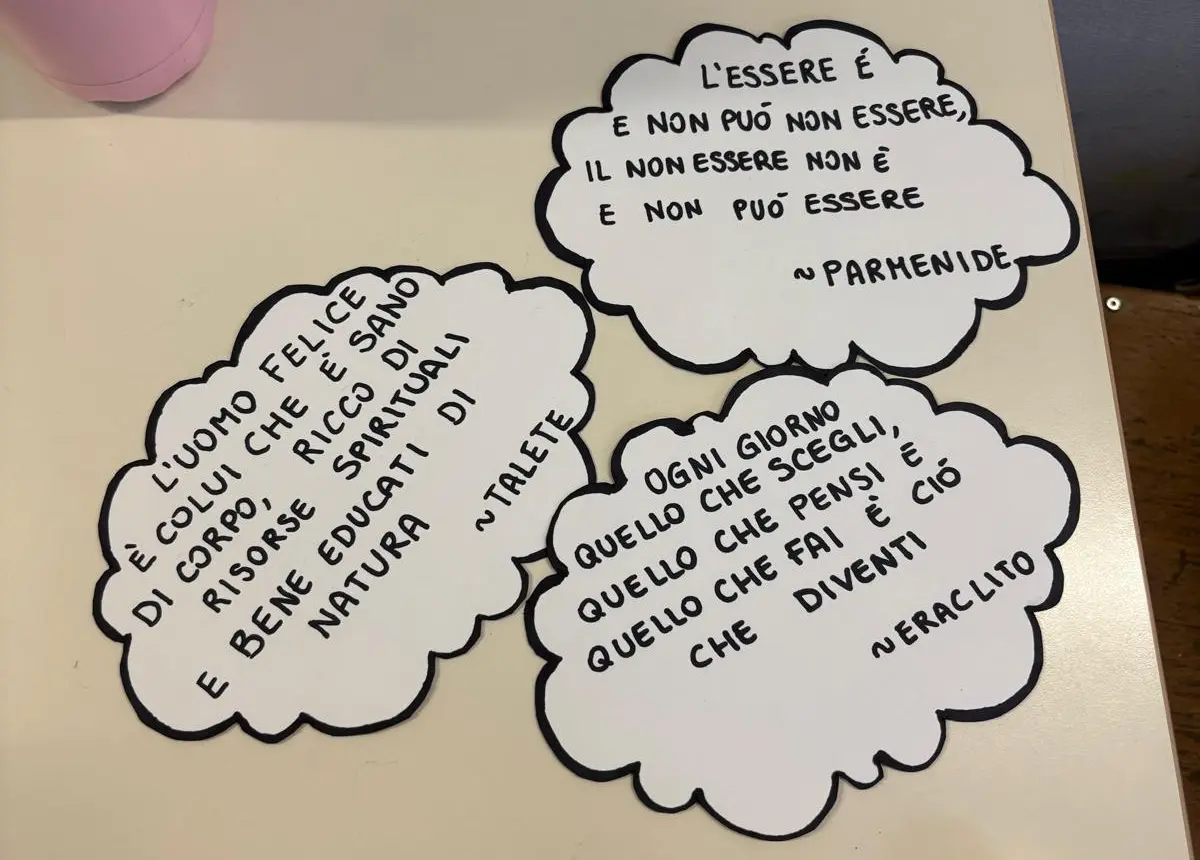 L'ESSERE É
E NON PUÓ NON ESSERE,
IL NON ESSERE NON È
E NON PUÓ ESSERE
~PARMENIDE
L'UOMO FELICE
È COLUI CHE È SANO
DI CORPO, RICCO DI
RISORSE SPIRITUALI
E BENE EDUCATI DI
NATURA
~TALETE
OGNI GIORNO
QUELLO CHE SCEGLI,
QUELLO CHE PENSI E
QUELLO CHE FAI È CIÓ
CHE DIVENTI
~ERACLITO